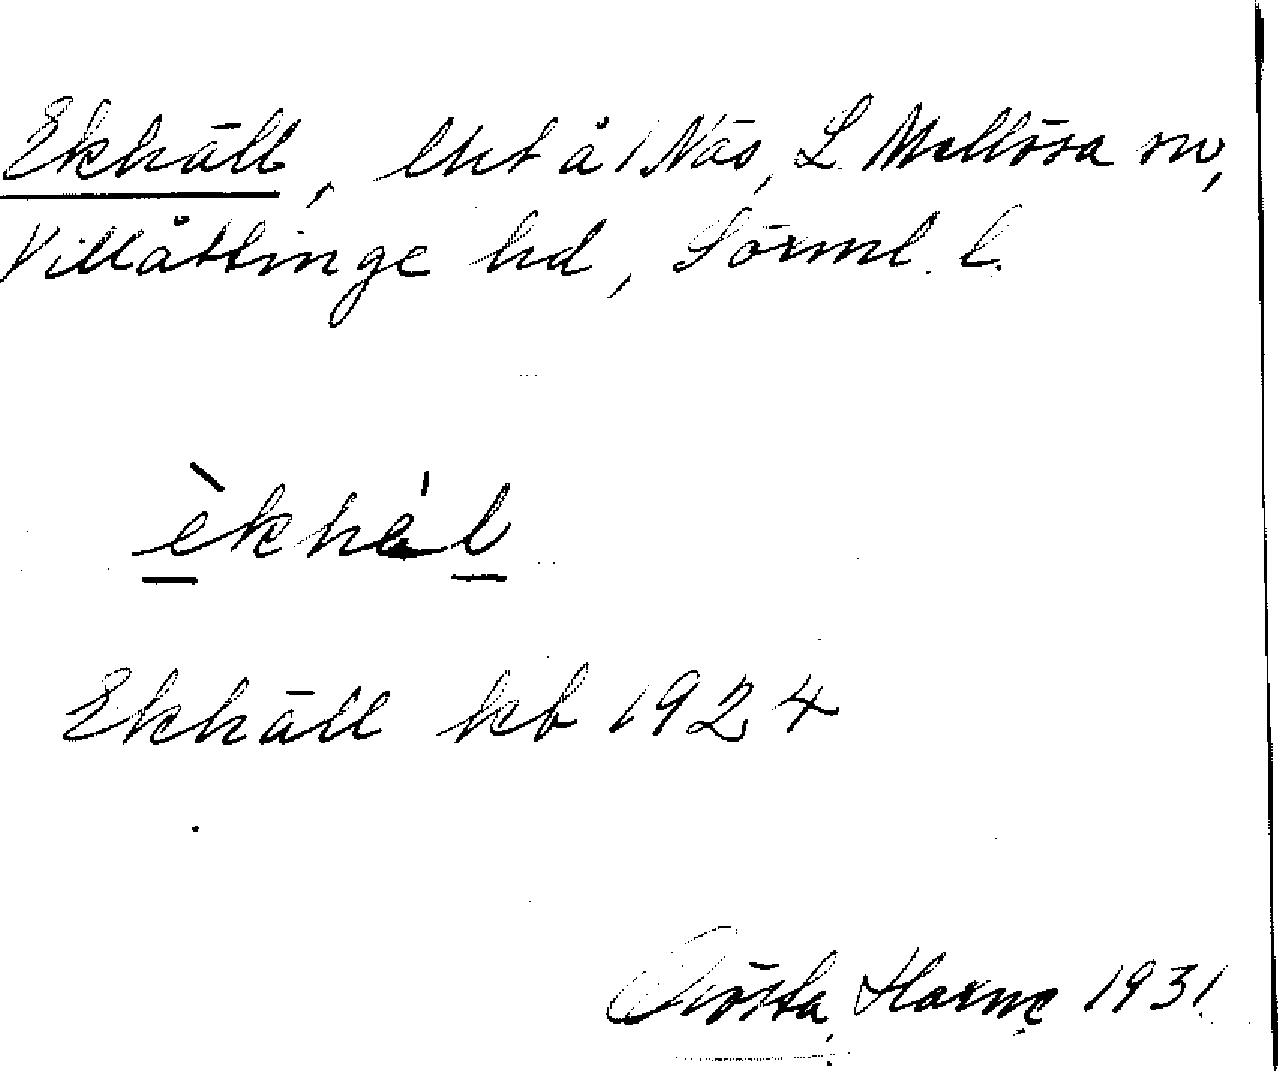 Ekhäll, lht å 1 Näs, L Mellösa sn,
Villåttinge hd, Sörml. l.
èkhäl
Ekhäll kb 1924
Gösta Harme 1931